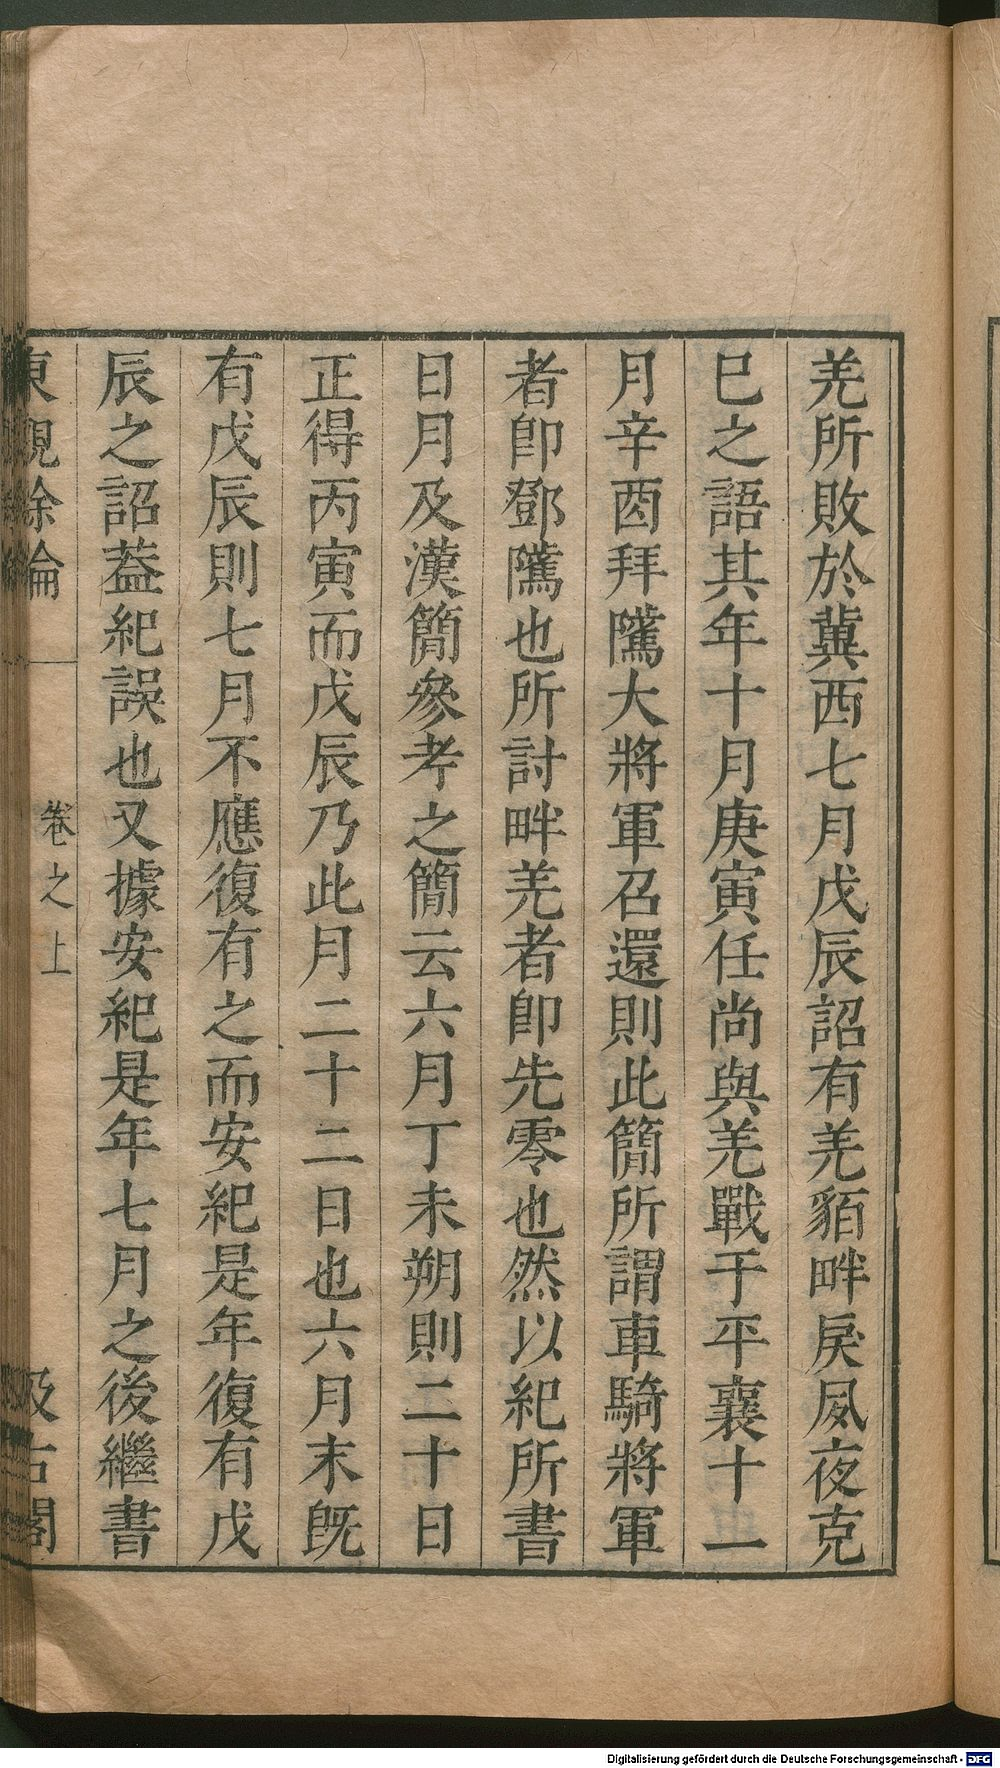 羌所敗於兾西七月戊辰詔有羌貊畔戾夙夜克
巳之語其年十月庚寅任尚與羌戰于平襄十一
月辛酉拜隲大將軍召還則此簡所謂車騎將軍
者卽鄧隲也所討畔羌者卽先零也然以紀所書
日月及漢簡參考之簡云六月丁未朔則二十日
正得丙寅而戊辰乃此月二十二日也六月末旣
有戊辰則七月不應復有之而安紀是年復有戊
辰之詔葢紀誤也又據安紀是年七月之後繼書
東觀餘論
卷之上
汲古閣
Digitalisierung gefördert durch die Deutsche Forschungsgemeinschaft - DFG